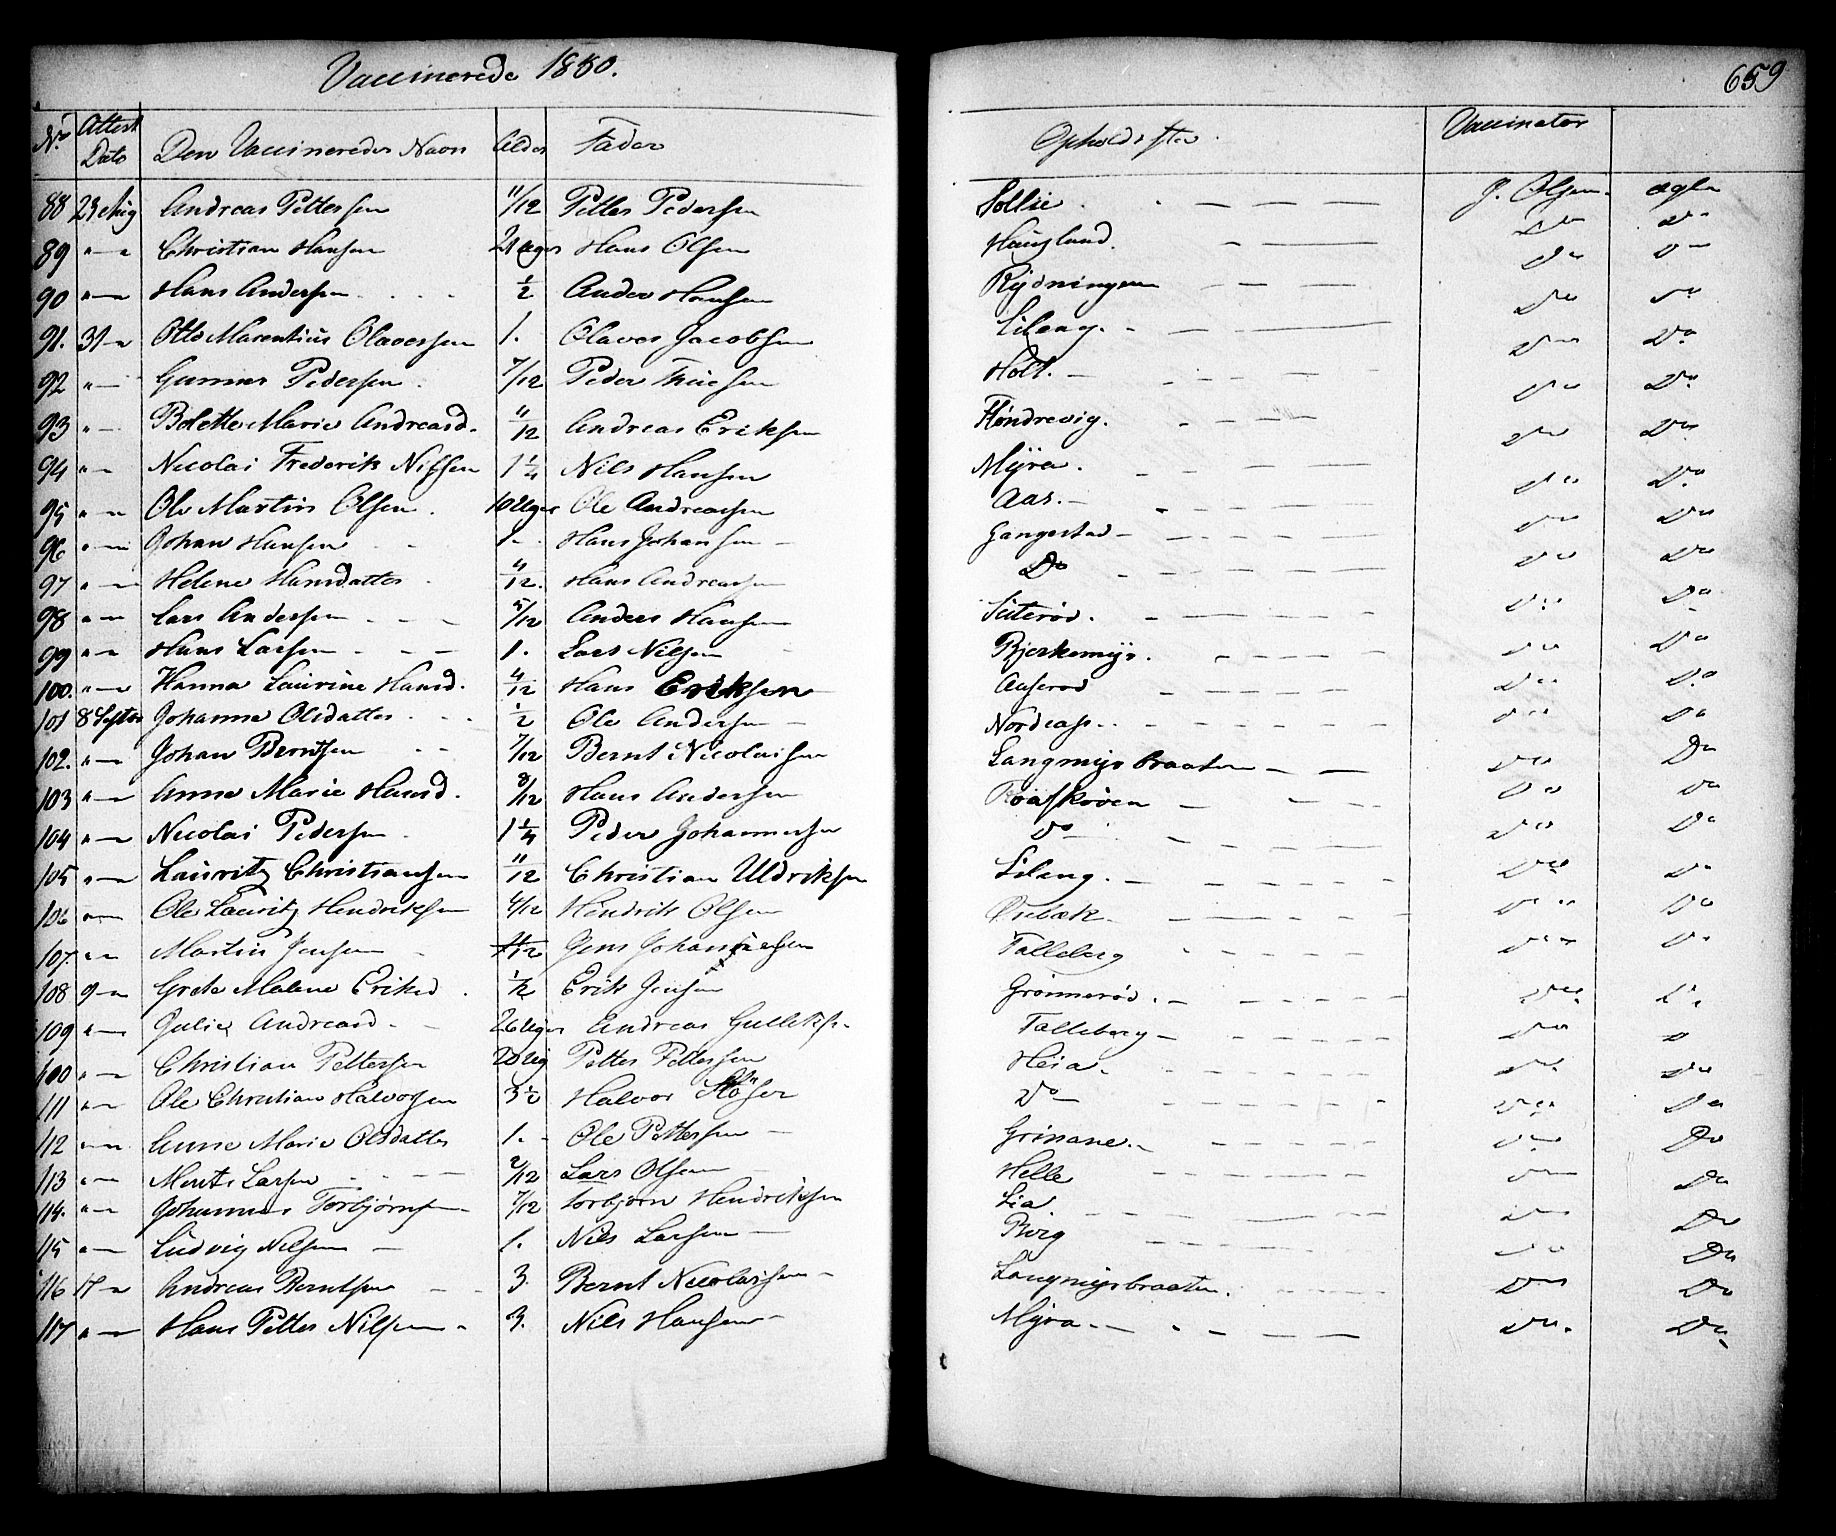 Vaccinerede 1850.
659
No Attest Dato Den Vaccineredes Navn Alder Fader Opholdsted Vaccinator
88 23 Aug Andreas Pettersen 11/12 Petter Pedersen Sollie - J. Olsen. ægte
89 " - Christian Hansen 21 uger Hans Olsen Haugland. Do Do
90 " - Hans Andersen 1/2 Anders Hansen Rydningen Do Do
91. 31 - Otto Marentius Olavessen 1. Olaves Jacobsen Lileng. - Do Do
92 " - Gunner Pedersen 7/12 Peder Thuesen Holt. - Do Do
93 " - Bolette Marie Andreasd. 11/12 Andreas Eriksen Høndrevig. Do Do
94 " - Nicolai Frederik Nilsen 1 1/4 Nils Hansen Myra. Do Do
95 " - Ole Martin Olsen. 10 Uger Ole Andreasen Aas. - Do Do
96 " - Johan Hansen 1. Hans Johansen - Gangestad - Do Do
97 " - Helene Hansdatter 4/12. Hans Andreasen Do Do Do
98 " - Lars Andersen 5/12 Anders Hansen Sæterød. Do Do
99 " - Hans Larsen 1. Lars Nilsen Bjerkemyr. Do Do
100. " - Hanna Laurine Hansd. 4/12 Hans Eriksen Aaserød Do Do
101 8 Septbr Johanne Olsdatter 1/2 Ole Andersen - Nordcap. Do Do
102. " - Johan Berntsen 7/12 Bernt Nicolaisen Langmyrbraaten - Do Do
103 " - Anne Marie Hansd. 8/12 Hans Andersen Roafkoven Do Do
104 " - Nicolai Pedersen 1 1/4 Peder Johannesen Do Do Do
105 " - Lauritz Christiansen 11/12 Christian Uldriksen Lileng. - Do Do
106 " - Ole Lauritz Hendriksen 4/12 Hendrik Olsen Ørebæk. Do Do
107. " - Martin Jensen 11/12 Jens Johannesen Falleberg Do Do
108 9 - Grete Malene Eriksd. 1/2 Erik Jensen Grønnerød. - Do Do
109 " - Julie Andreasd. 26 Uger Andreas Gulliks. Falleberg - Do Do
100 " - Christian Pettersen 20 Ug Petter Pettersen Heia. Do Do
111 " - Ole Christian Halvorsen 3 1/2 Halvor Do Do Do
112 " - Anne Marie Olsdatter 1. - Ole Pettersen - Grinane. - Do Do
113 " - Larsen 2/12 Lars Olsen Helle Do Do
114. " - Johannes Torbjørns 7/12 Torbjørn Hendriksen Lia Do Do
115 " - Ludvig Nilsen - 1. Nils Larsen - Berg Do Do
116 17 - Andreas Berntsen 3. Bernt Nicolaisen - Langmyrbraaten. Do Do
117 " - Hans Petter Nilsen - 3. Nils Hansen - Myra - Do Do